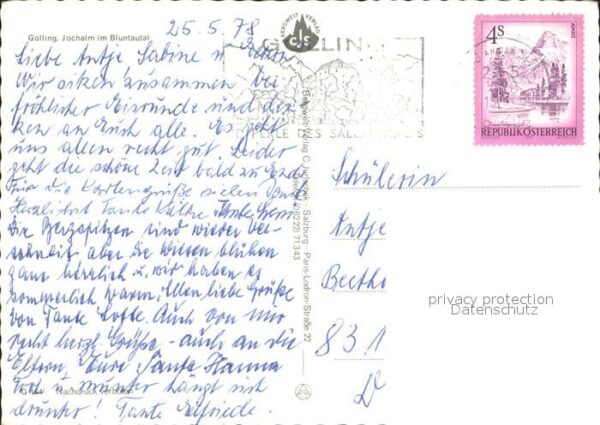 25.5.78
Golling, Jochalm im Bluntautal
Liebe Antje Sabine u.
Wir sitzen zusammen bei
fröhlicher Eisrunde und den-
ken an Euch alle. Es geht
uns allen recht gut Leider
geht die schöne Zeit bald zu Ende
Für die Kartengrüße vielen Dank
Herzlichst Tante Käthe Tante
Die Bergspitzen sind wieder ver-
schneit aber die Wiesen blühen
ganz herrlich u. wir haben es
sommerlich warm. Allen liebe Grüße
von Tante Lotte. Auch von mir
recht herzl. Grüße - auch an die
Eltern, Eure Tante Hanna
u. munter hängt sich
drunter! Tante Elfriede.
Nachdruck verboten
BERGWELT VERLAG
GOLLING
PERLE DES SALZACHTALES
Bergwelt-Verlag C. Salzburg - Paris-Lodron-Straße 22
(06222) 71343
4S
REPUBLIK ÖSTERREICH
Schülerin
Antje
Beetho
831
D
privacy protection
Datenschutz